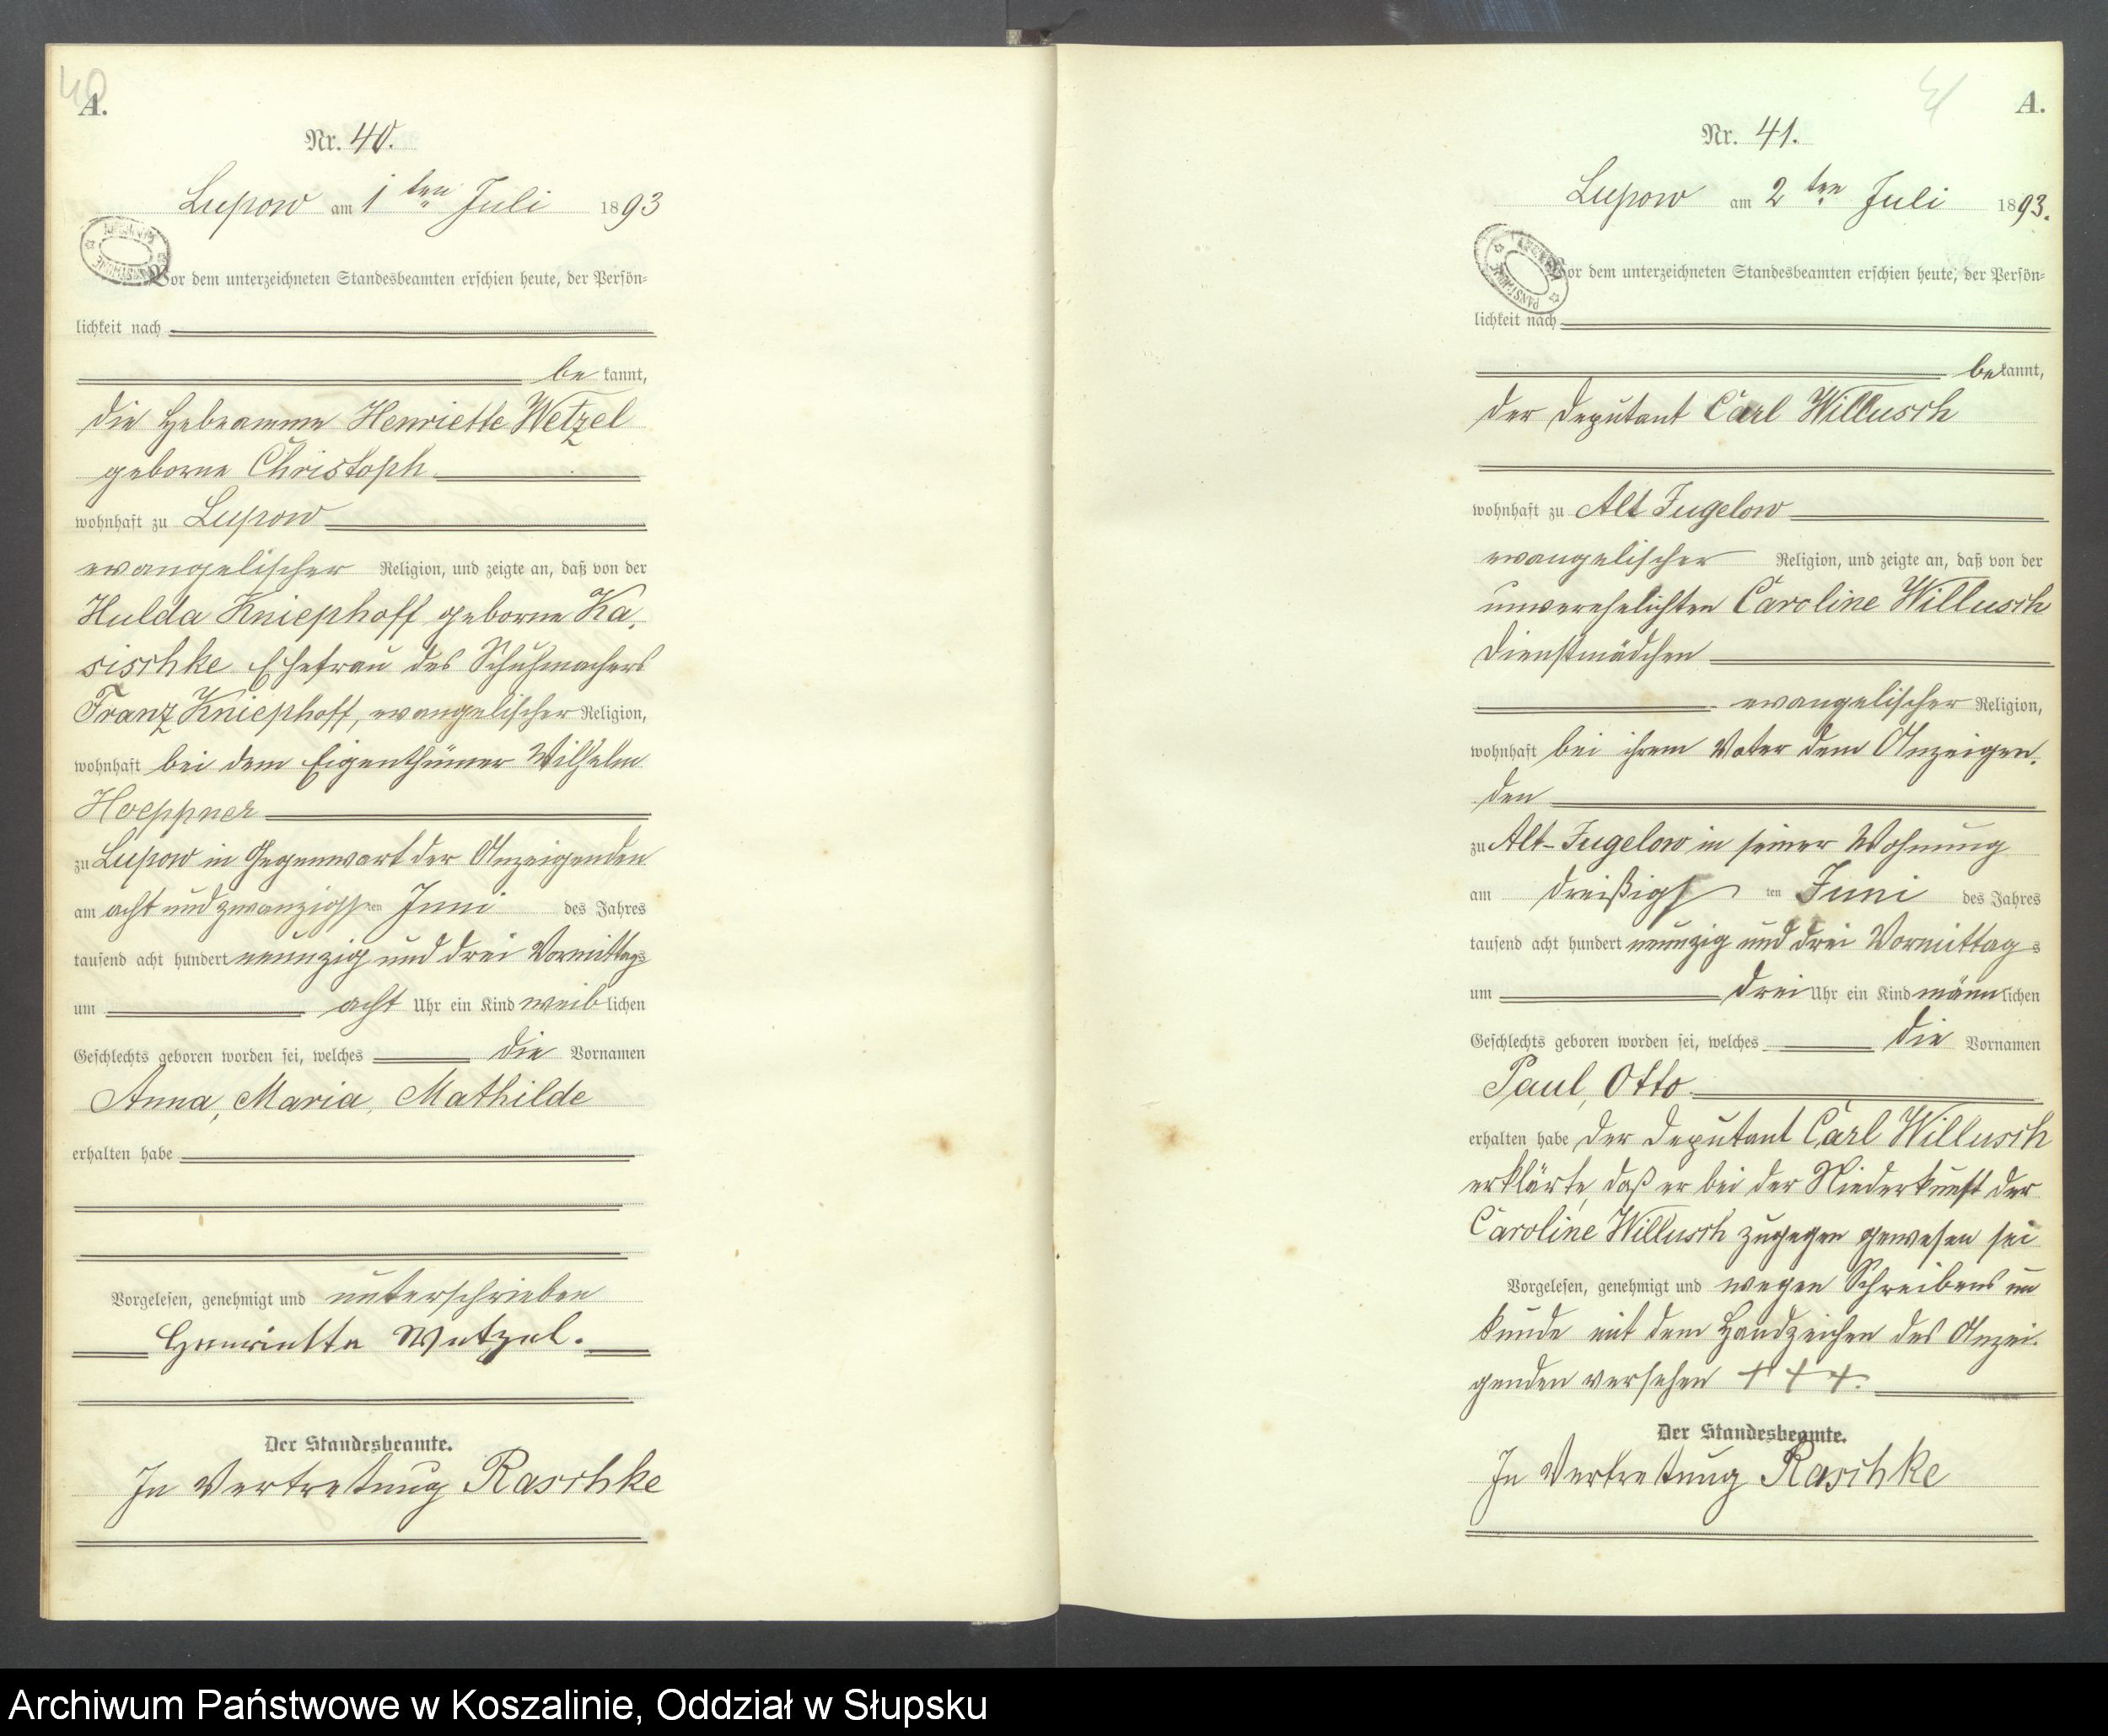 40
A.
Nr. 40.
Lupow am 1ten Juli 1893
Vor dem unterzeichneten Standesbeamten erschien heute, der Persön=
lichkeit nach
be kannt,
die Hebeamme Henriette Wetzel
geborne Christoph
wohnhaft zu Lupow
evangelischer Religion, und zeigte an, daß von der
Hulda Kniephoff geborne Ka-
sischke Ehefrau des Schuhmachers
Franz Kniephoff, evangelischer Religion,
wohnhaft bei dem Eigenthümer Wilhelm
Hoeppner
zu Lupow in Gegenwart der Anzeigenden
am acht und zwanzigsten Juni des Jahres
tausend acht hundert neunzig und drei Vormittags
um acht Uhr ein Kind weiblichen
Geschlechts geboren worden sei, welches die Vornamen
Anna, Maria, Mathilde
erhalten habe
Vorgelesen, genehmigt und unterschrieben
Henriette Wetzel.
Der Standesbeamte.
In Vertretung Raschke
41
A.
Nr. 41.
Lupow am 2ten Juli 1893.
Vor dem unterzeichneten Standesbeamten erschien heute, der Persön=
lichkeit nach
bekannt,
der Deputant Carl Willusch
wohnhaft zu Alt Jugelow
evangelischer Religion, und zeigte an, daß von der
unverehelichten Caroline Willusch
Dienstmädchen
evangelischer Religion,
wohnhaft bei ihrem Vater dem Anzeigen-
den
zu Alt-Jugelow in seiner Wohnung
am dreißigsten Juni des Jahres
tausend acht hundert neunzig und drei Vormittags
um drei Uhr ein Kind männlichen
Geschlechts geboren worden sei, welches die Vornamen
Paul, Otto
erhalten habe der Deputant Carl Willusch
erklärte, daß er bei der Niederkunft der
Caroline Willusch zugegen gewesen sei
Vorgelesen, genehmigt und wegen Schreibens un
kunde mit dem Handzeichen des Anzei-
genden versehen +++.
Der Standesbeamte.
In Vertretung Raschke
Archiwum Państwowe w Koszalinie, Oddział w Słupsku